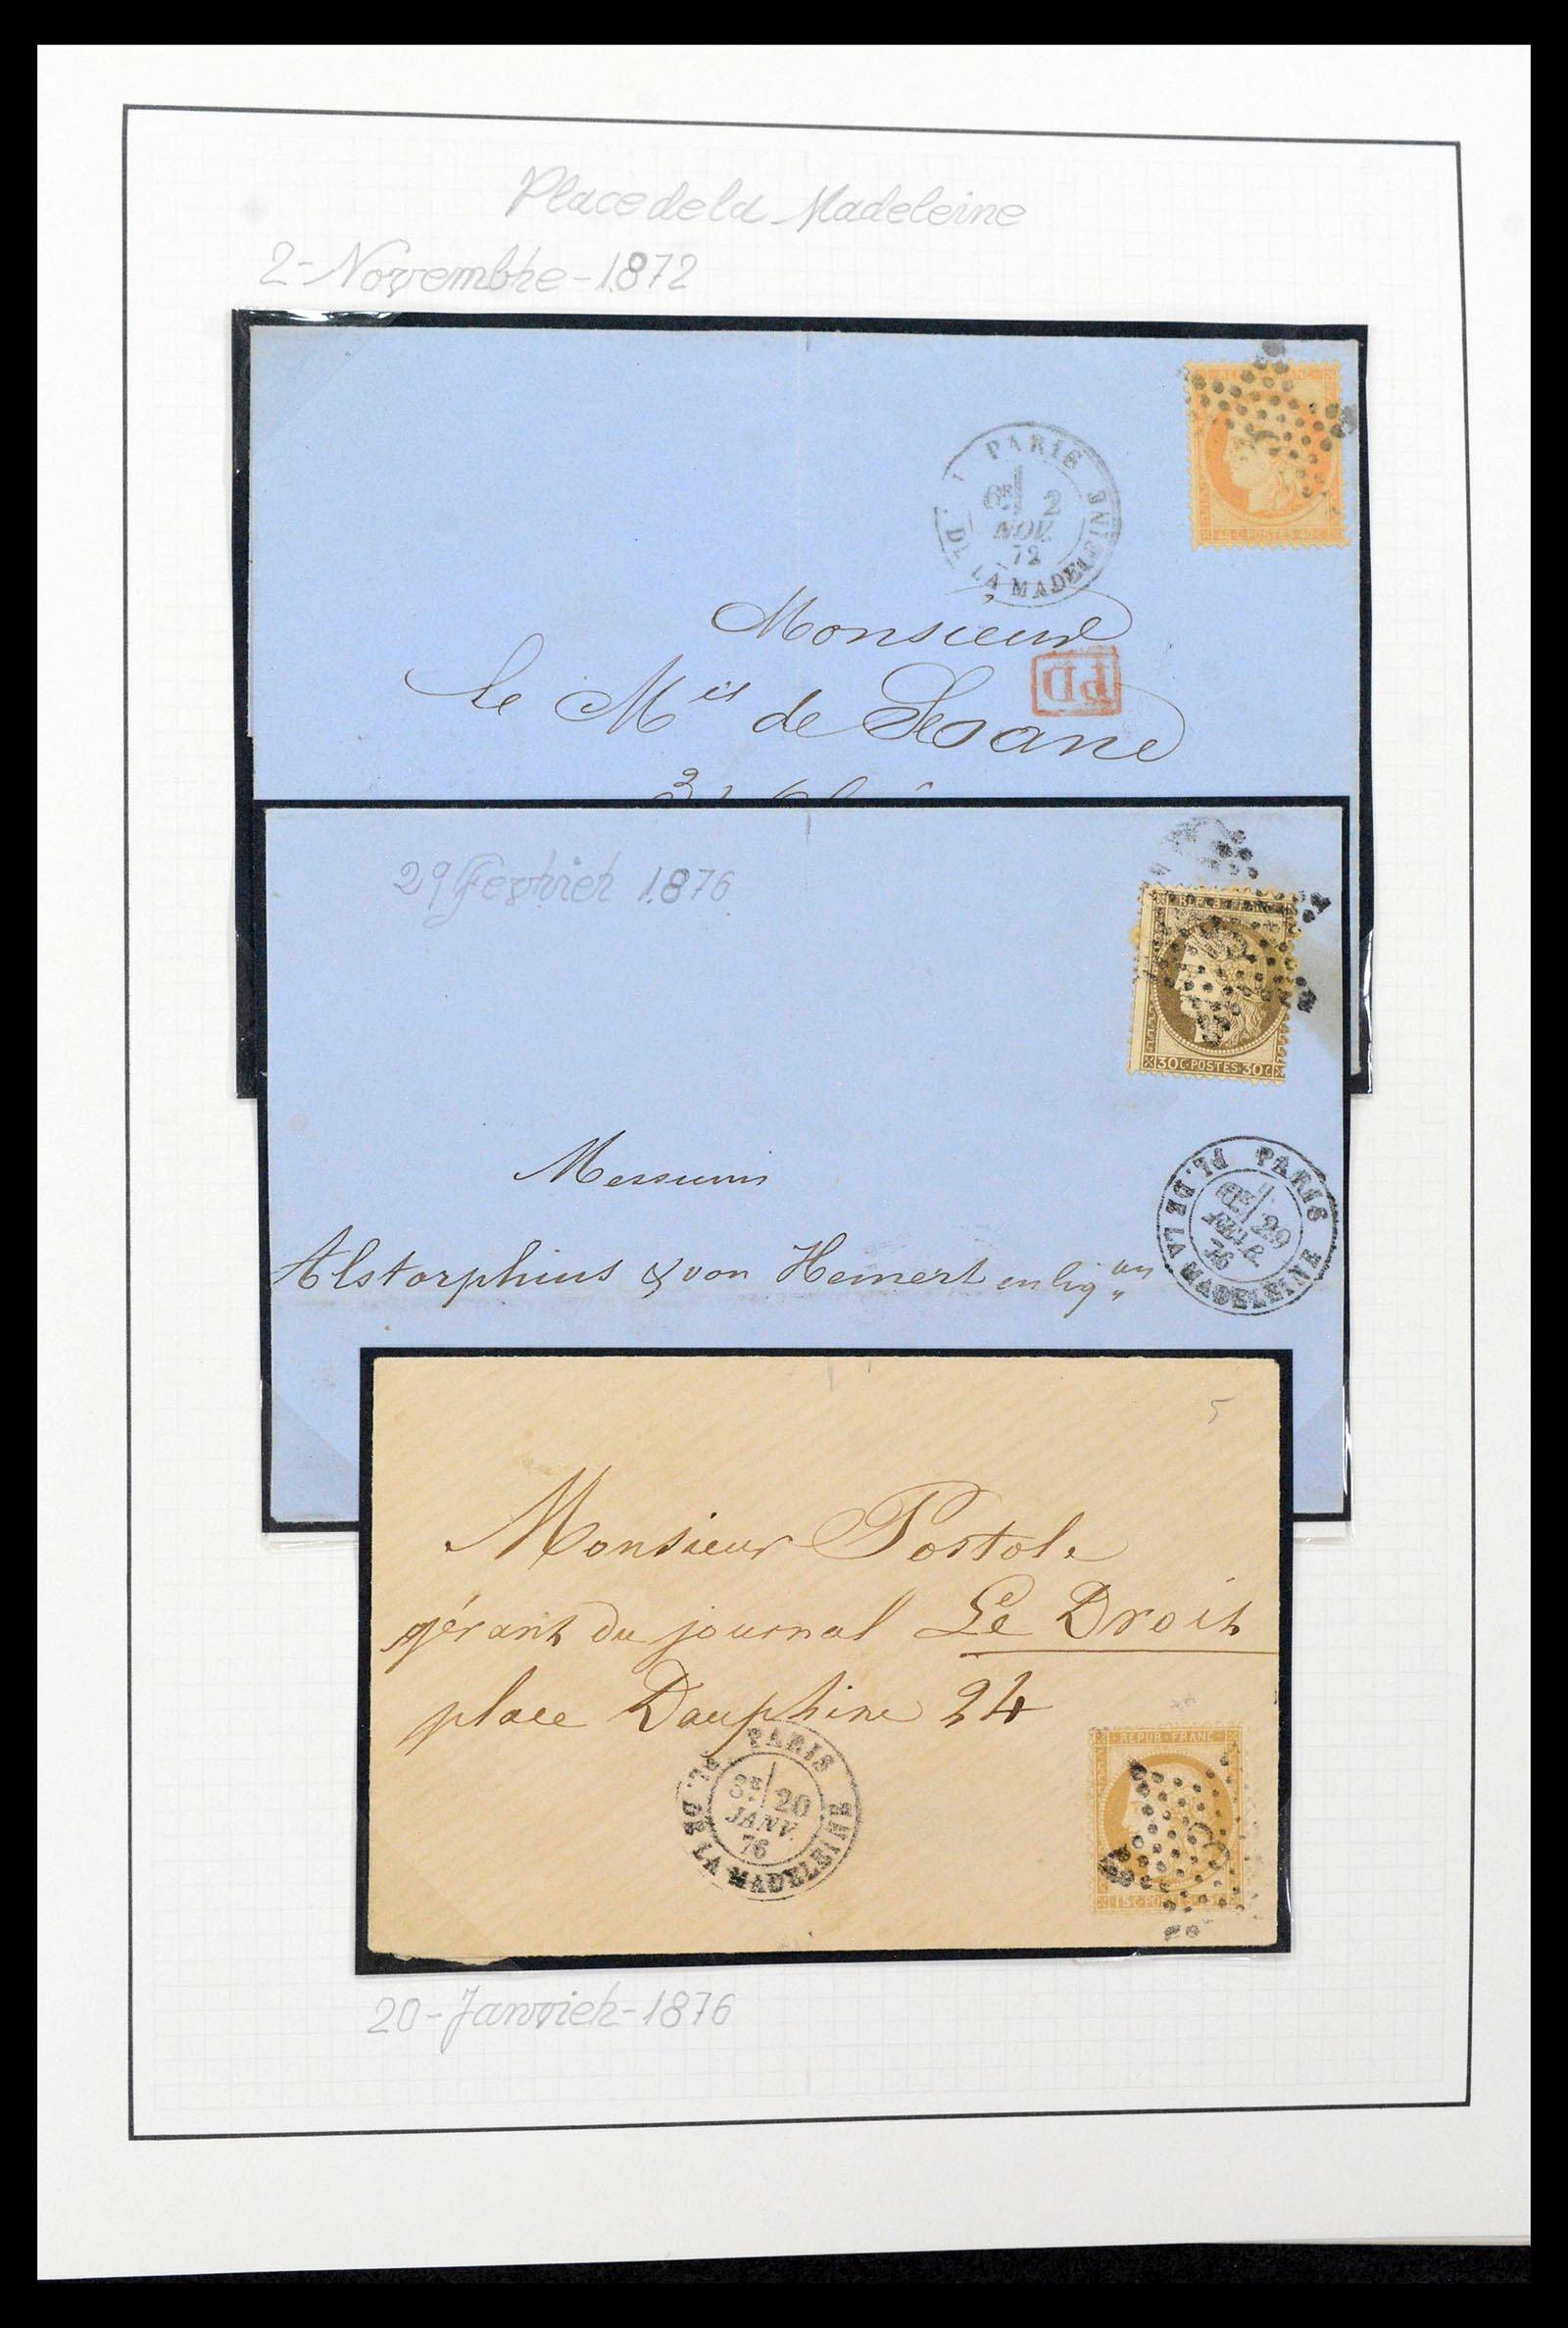 Place de la Madeleine
2-Novembre-1872
REPUB FRANC
40 C POSTES 40 C
PARIS
6E 2
NOV.
72
DE LA MADELEINE
Monsieur
PD
le Mis de
29 Fevrier 1876
30 C·POSTES·30 C
Messieurs
Alstorphius & von Hemert en liqon
PARIS
6E 29
FEVR
76
PL. DE LA MADELEINE
5
Monsieur Postole
gérant du journal Le Droit
place Dauphine 24
PARIS
3E 20
JANV.
76
PL. DE LA MADELEINE
REPUB·FRANC·
15 C·POSTES
20-Janvier-1876